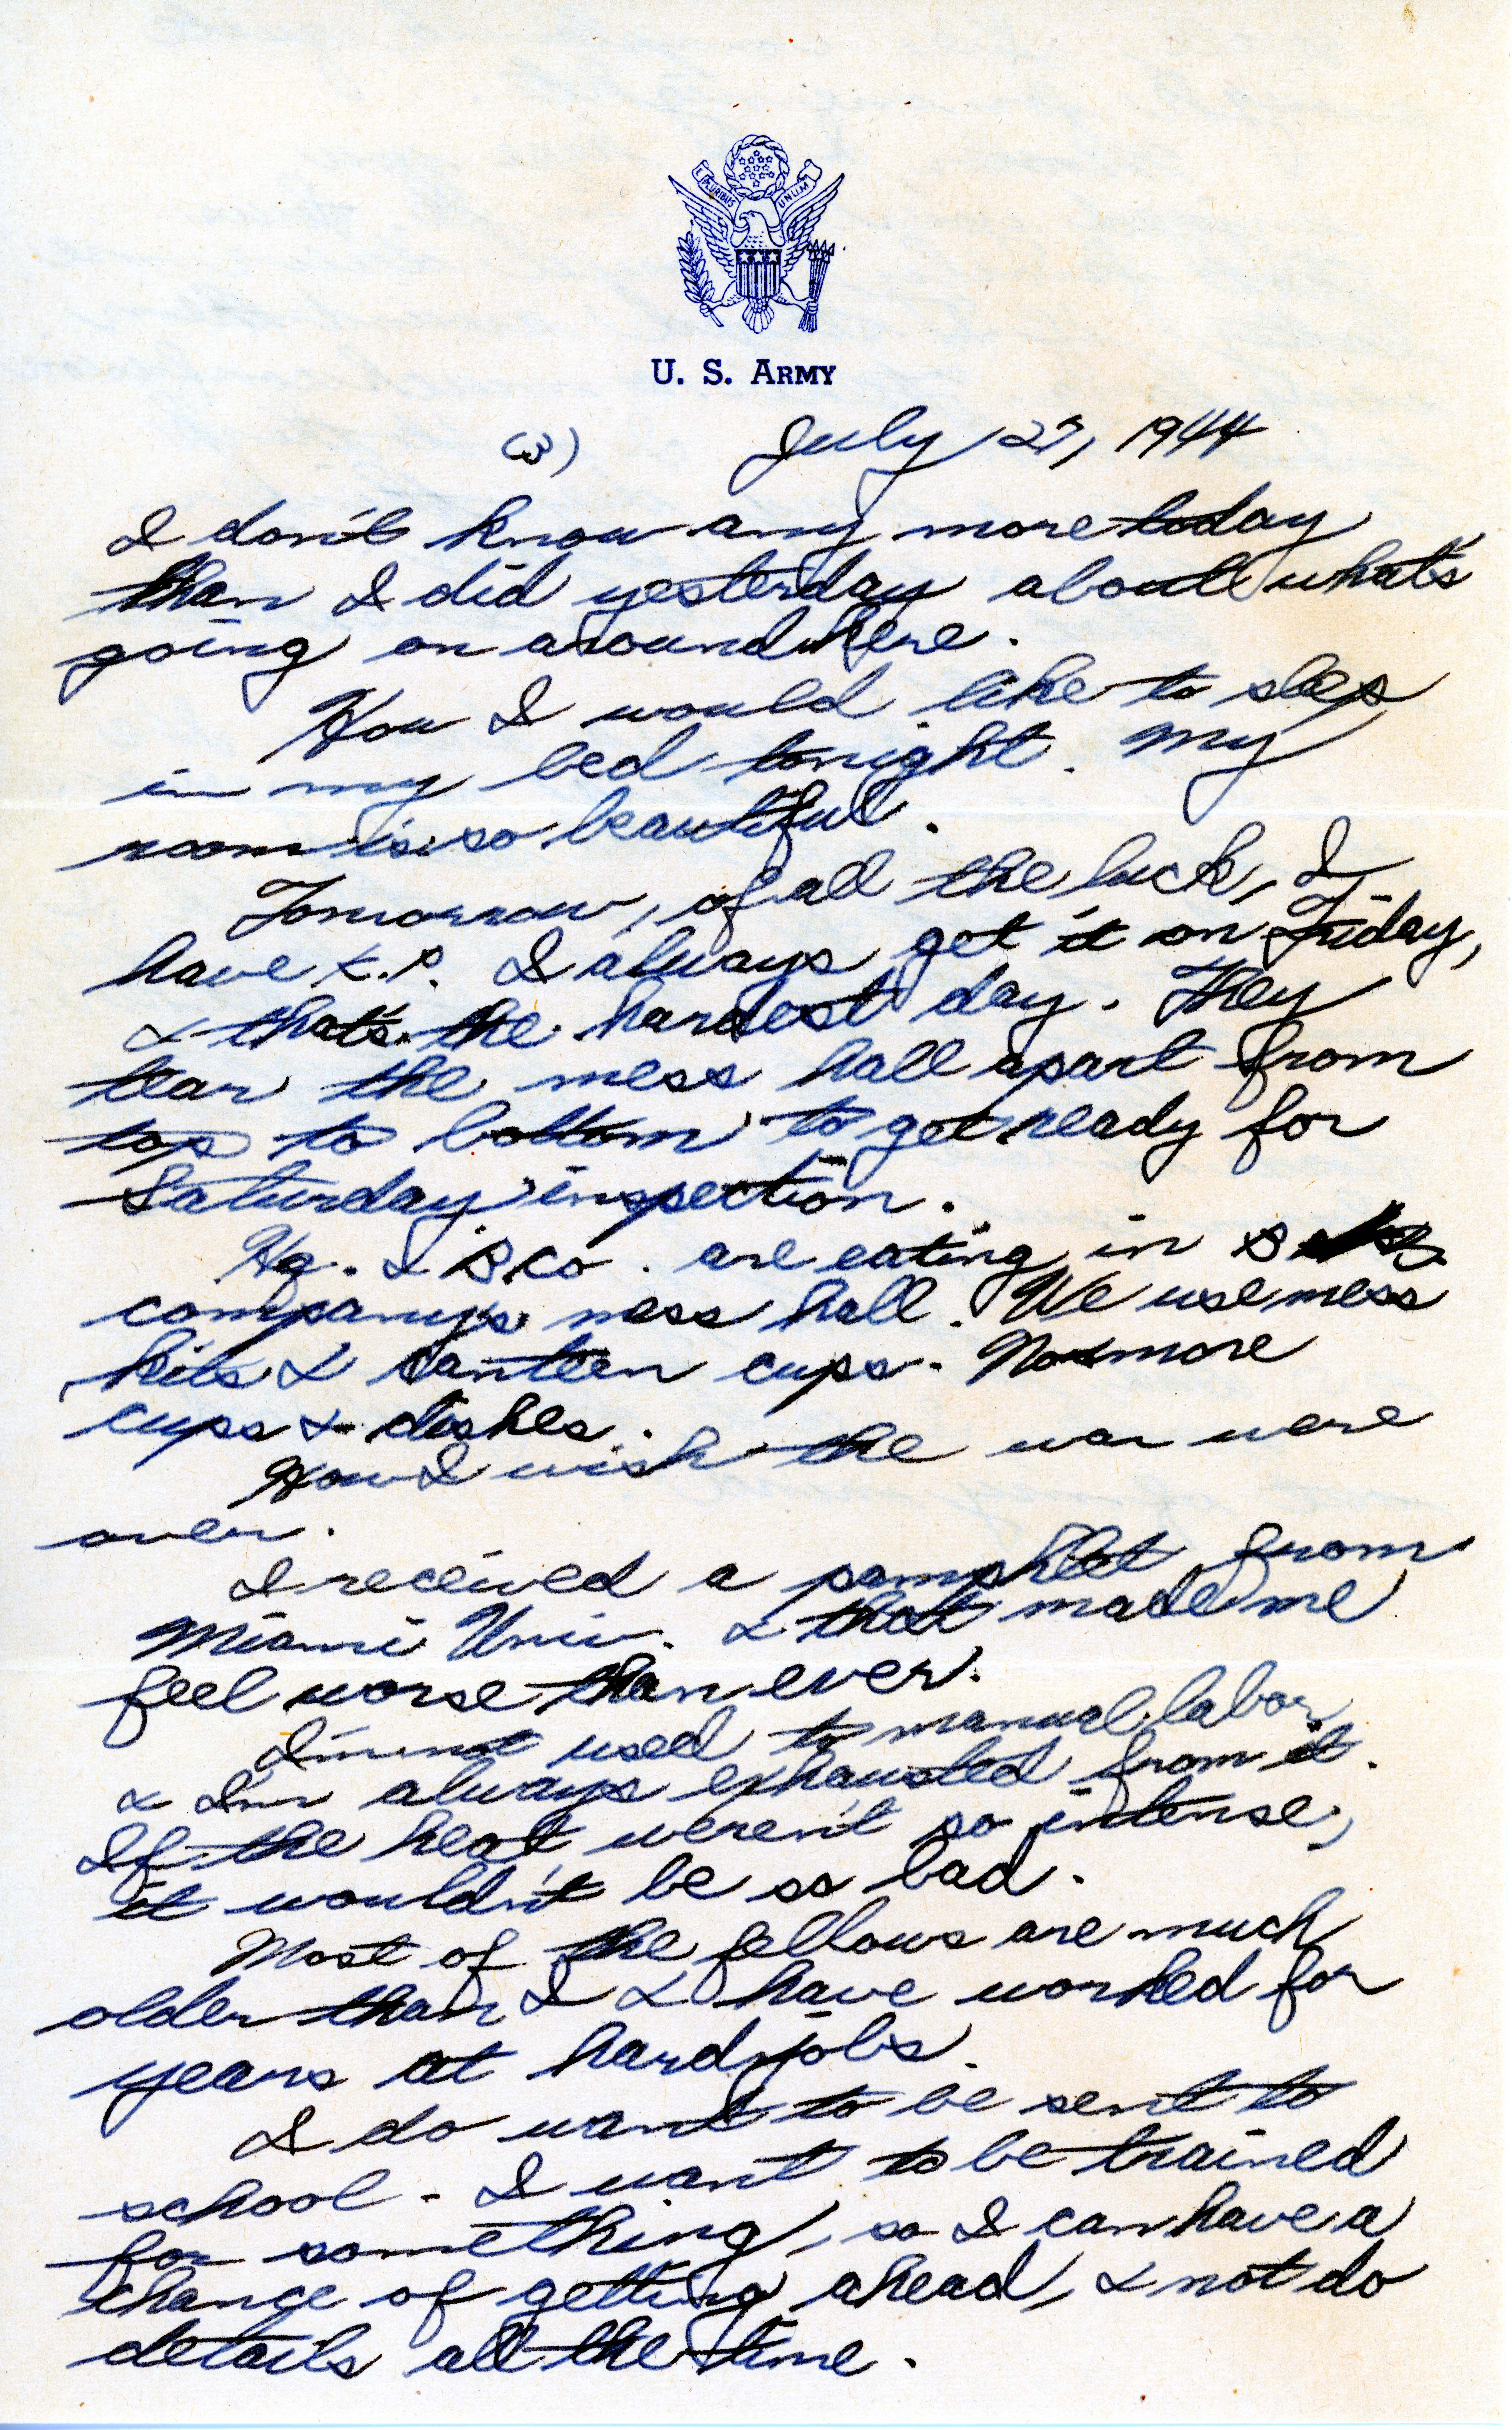 E PLURIBUS UNUM
U. S. ARMY
(3) July 27, 1944
I don't know any more today
than I did yesterday about what's
going on around here.
How I would like to sleep
in my bed tonight. My
room is so beautiful.
Tomorrow, of all the luck, I
have K.P. I always get it on Friday,
& that's the hardest day. They
tear the mess hall apart from
top to bottom to get ready for
Saturday inspection.
Hq. & B Co. are eating in B
company's mess hall. We use mess
kits & canteen cups. No more
cups & dishes.
How I wish the war were
over.
I received a pamphlet from
Miami Univ. & that made me
feel worse than ever.
I'm not used to manual labor
& I'm always exhausted from it.
If the heat weren't so intense,
it wouldn't be so bad.
Most of the fellows are much
older than I & have worked for
years at hard jobs.
I do want to be sent to
school. I want to be trained
for something, so I can have a
chance of getting ahead, & not do
details all the time.